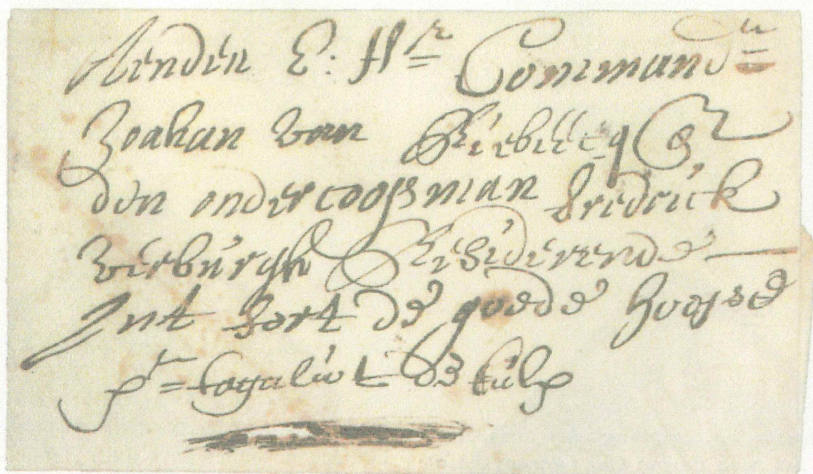 Aenden E: Hr= Command=r
Johan van Riebeecq &
den ondercoopman fredrick
verburgh Residerende
Int fort de goede hoope
pr= galiot de tulp